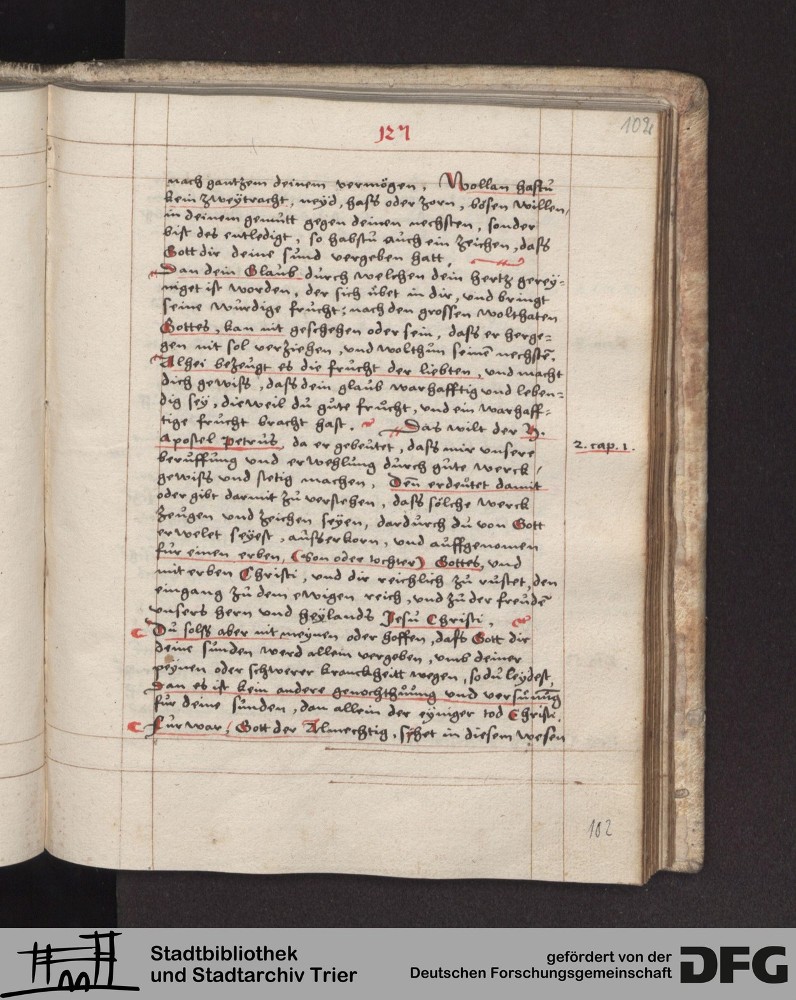 127
102
nach gantzem deinem vermögen. Wollan hastu
kein zweÿtracht, neÿd, hass oder zorn, bösen willen,
in deinem gemütt gegen deinen nechsten, sonder
bist des entledigt, so habstu auch ein zeichen, dass
Gott dir deine sund vergeben hatt.
Dan dein Glaub durch welchen dein hertz gerey=
niget ist worden, der sich übet in dir, und bringt
seine würdige frücht, nach den grossen wolthaten
Gottes, kan nit geschehen oder sein, dass er herge=
gen nit sol verziehen, und wolthun seinē nechstē.
Alhei bezeugt es die frucht der liebten, und macht
dich gewiss, dass dein glaub warhafftig und leben=
dig seÿ, dieweil du gute frücht, und ein warhaff=
tige frucht bracht hast. Das wilt der H.
Apostel Petrus, da er gebeutet, dass mir unsere
2. cap. 1.
beruffung und erwehlung durch güte werck,
gewiss und stetig machen. Den̄ erdeutet damit
oder gibt darmit zü verstehen, dass sölche werck
zeugen und zeichen seÿen, dardurch dü von Gott
erwelet seÿest, ausserkorn, und auffgenomen
für einen erben, (son oder tochter) Gottes, und
miterben Christi, und dir reichlich zü rüstet, den
eingang zü dem ewigen reich, und zü der freudē
unsers hern und heÿlands Jesu Christi.
Du solss aber nit meÿnen oder hoffen, dass Gott dir
deine sunden werd allein vergeben, umb deiner
peÿnen oder schwerer kranckheitt wegen, so du leydest,
dan es ist kein andere genochthuung und versünūg
für deine sunden, dan allein der eÿniger tod Christi.
Fürwar, Gott der Almechtig, sÿhet in diesem wesen
102
Stadtbibliothek
und Stadtarchiv Trier
gefördert von der
Deutschen Forschungsgemeinschaft
DFG